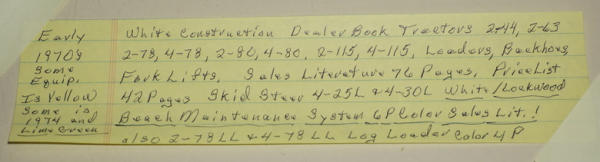 Early White Construction Dealer Book Tractors 2-44, 2-63
1970's 2-78, 4-78, 2-80, 4-80, 2-115, 4-115, Loaders, Backhoes,
Some Equip. Fork Lifts, Sales Literature 76 Pages, Price List
Is Yellow 42 Pages Skid Steer 4-25L & 4-30L White/Lockwood
Some is 1974 and Beach Maintenance System 6P Color Sales Lit.!
Lime Green also 2-78LL & 4-78LL Log Loader Color 4P